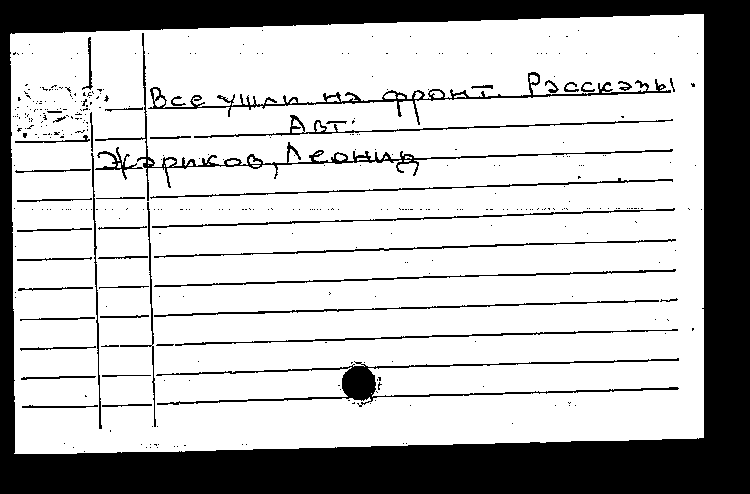 Все ушли на фронт. Рассказы.
Авт:
Жариков, Леонид